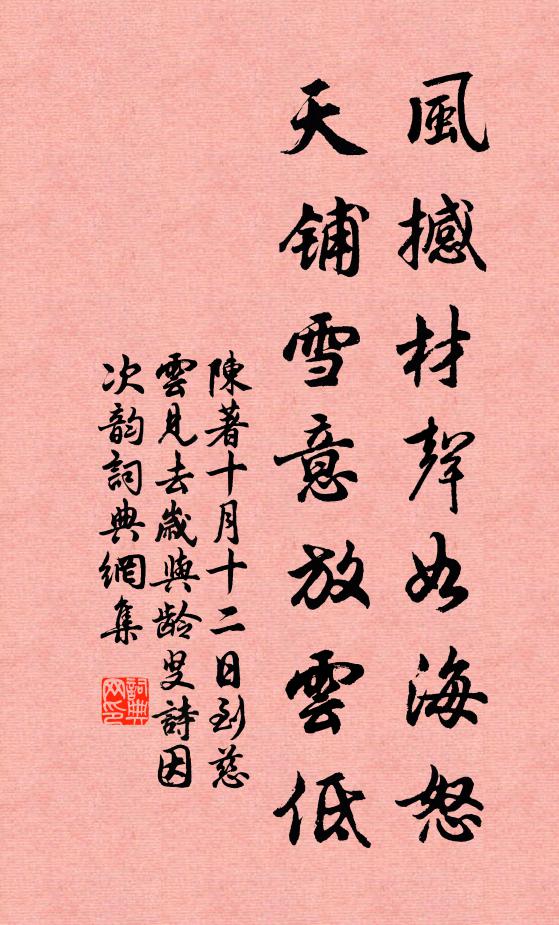 風撼材聲如海怒
天鋪雪意放雲低
陳著十月十二日到慈
雲見去歲與齡叟詩因
次韵詞典網集
詞典网印